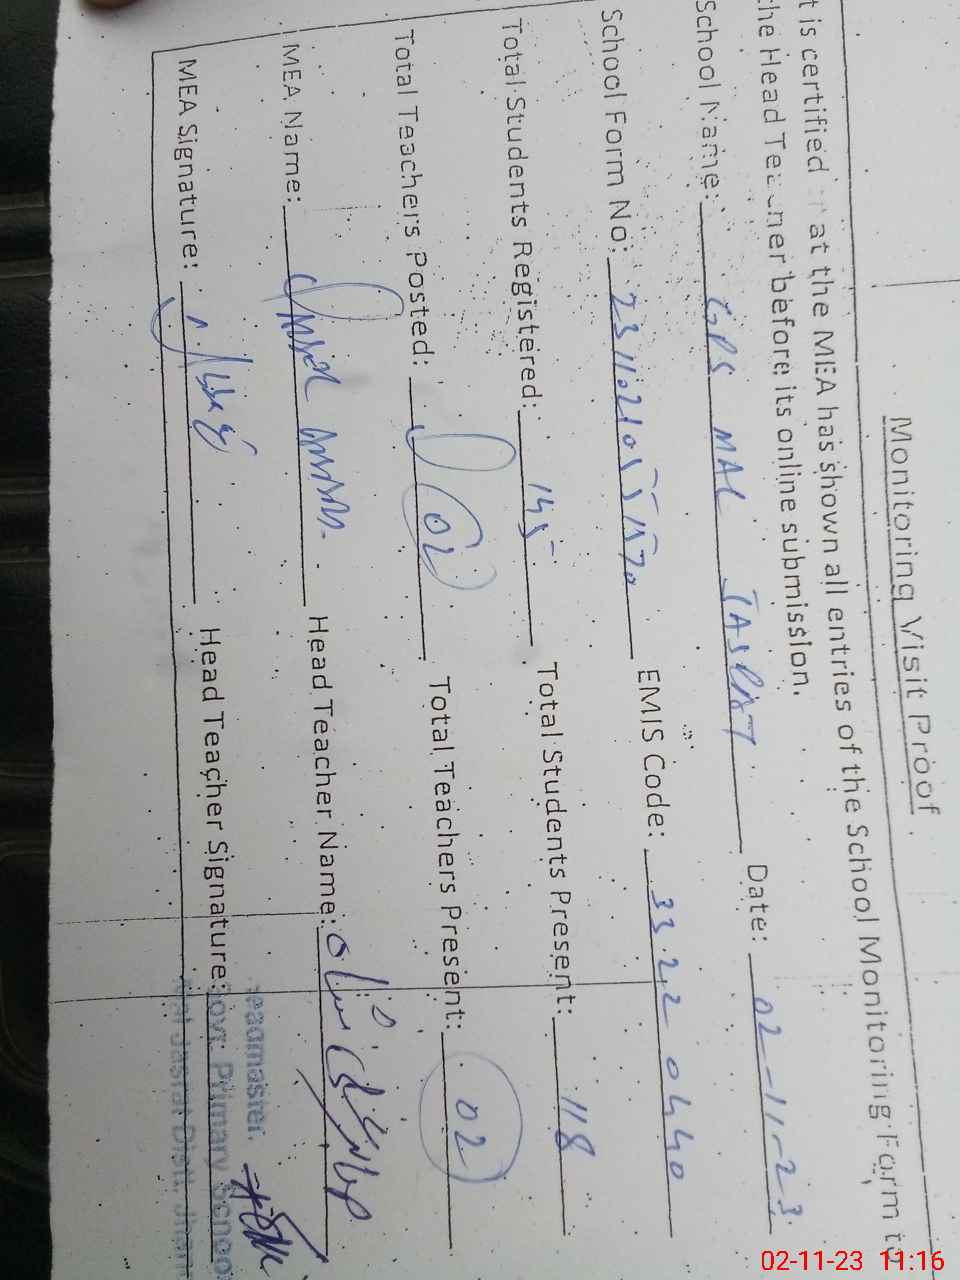 Monitoring Visit Proof
t is certified that the MEA has shown all entries of the School Monitoring Form to
the Head Teacher before its online submission.
School Name: GPS MAL JASRAT Date: 02-11-23
School Form No: EMIS Code: 33220440
Total Students Registered: 145 Total Students Present: 118
Total Teachers Posted: 02 Total Teachers Present: 02
MEA Name: Head Teacher Name:
MEA Signature: Head Teacher Signature:
Headmaster.
Govt. Primary School
Mal Jasrat Distt. Jhang
02-11-23 11:16